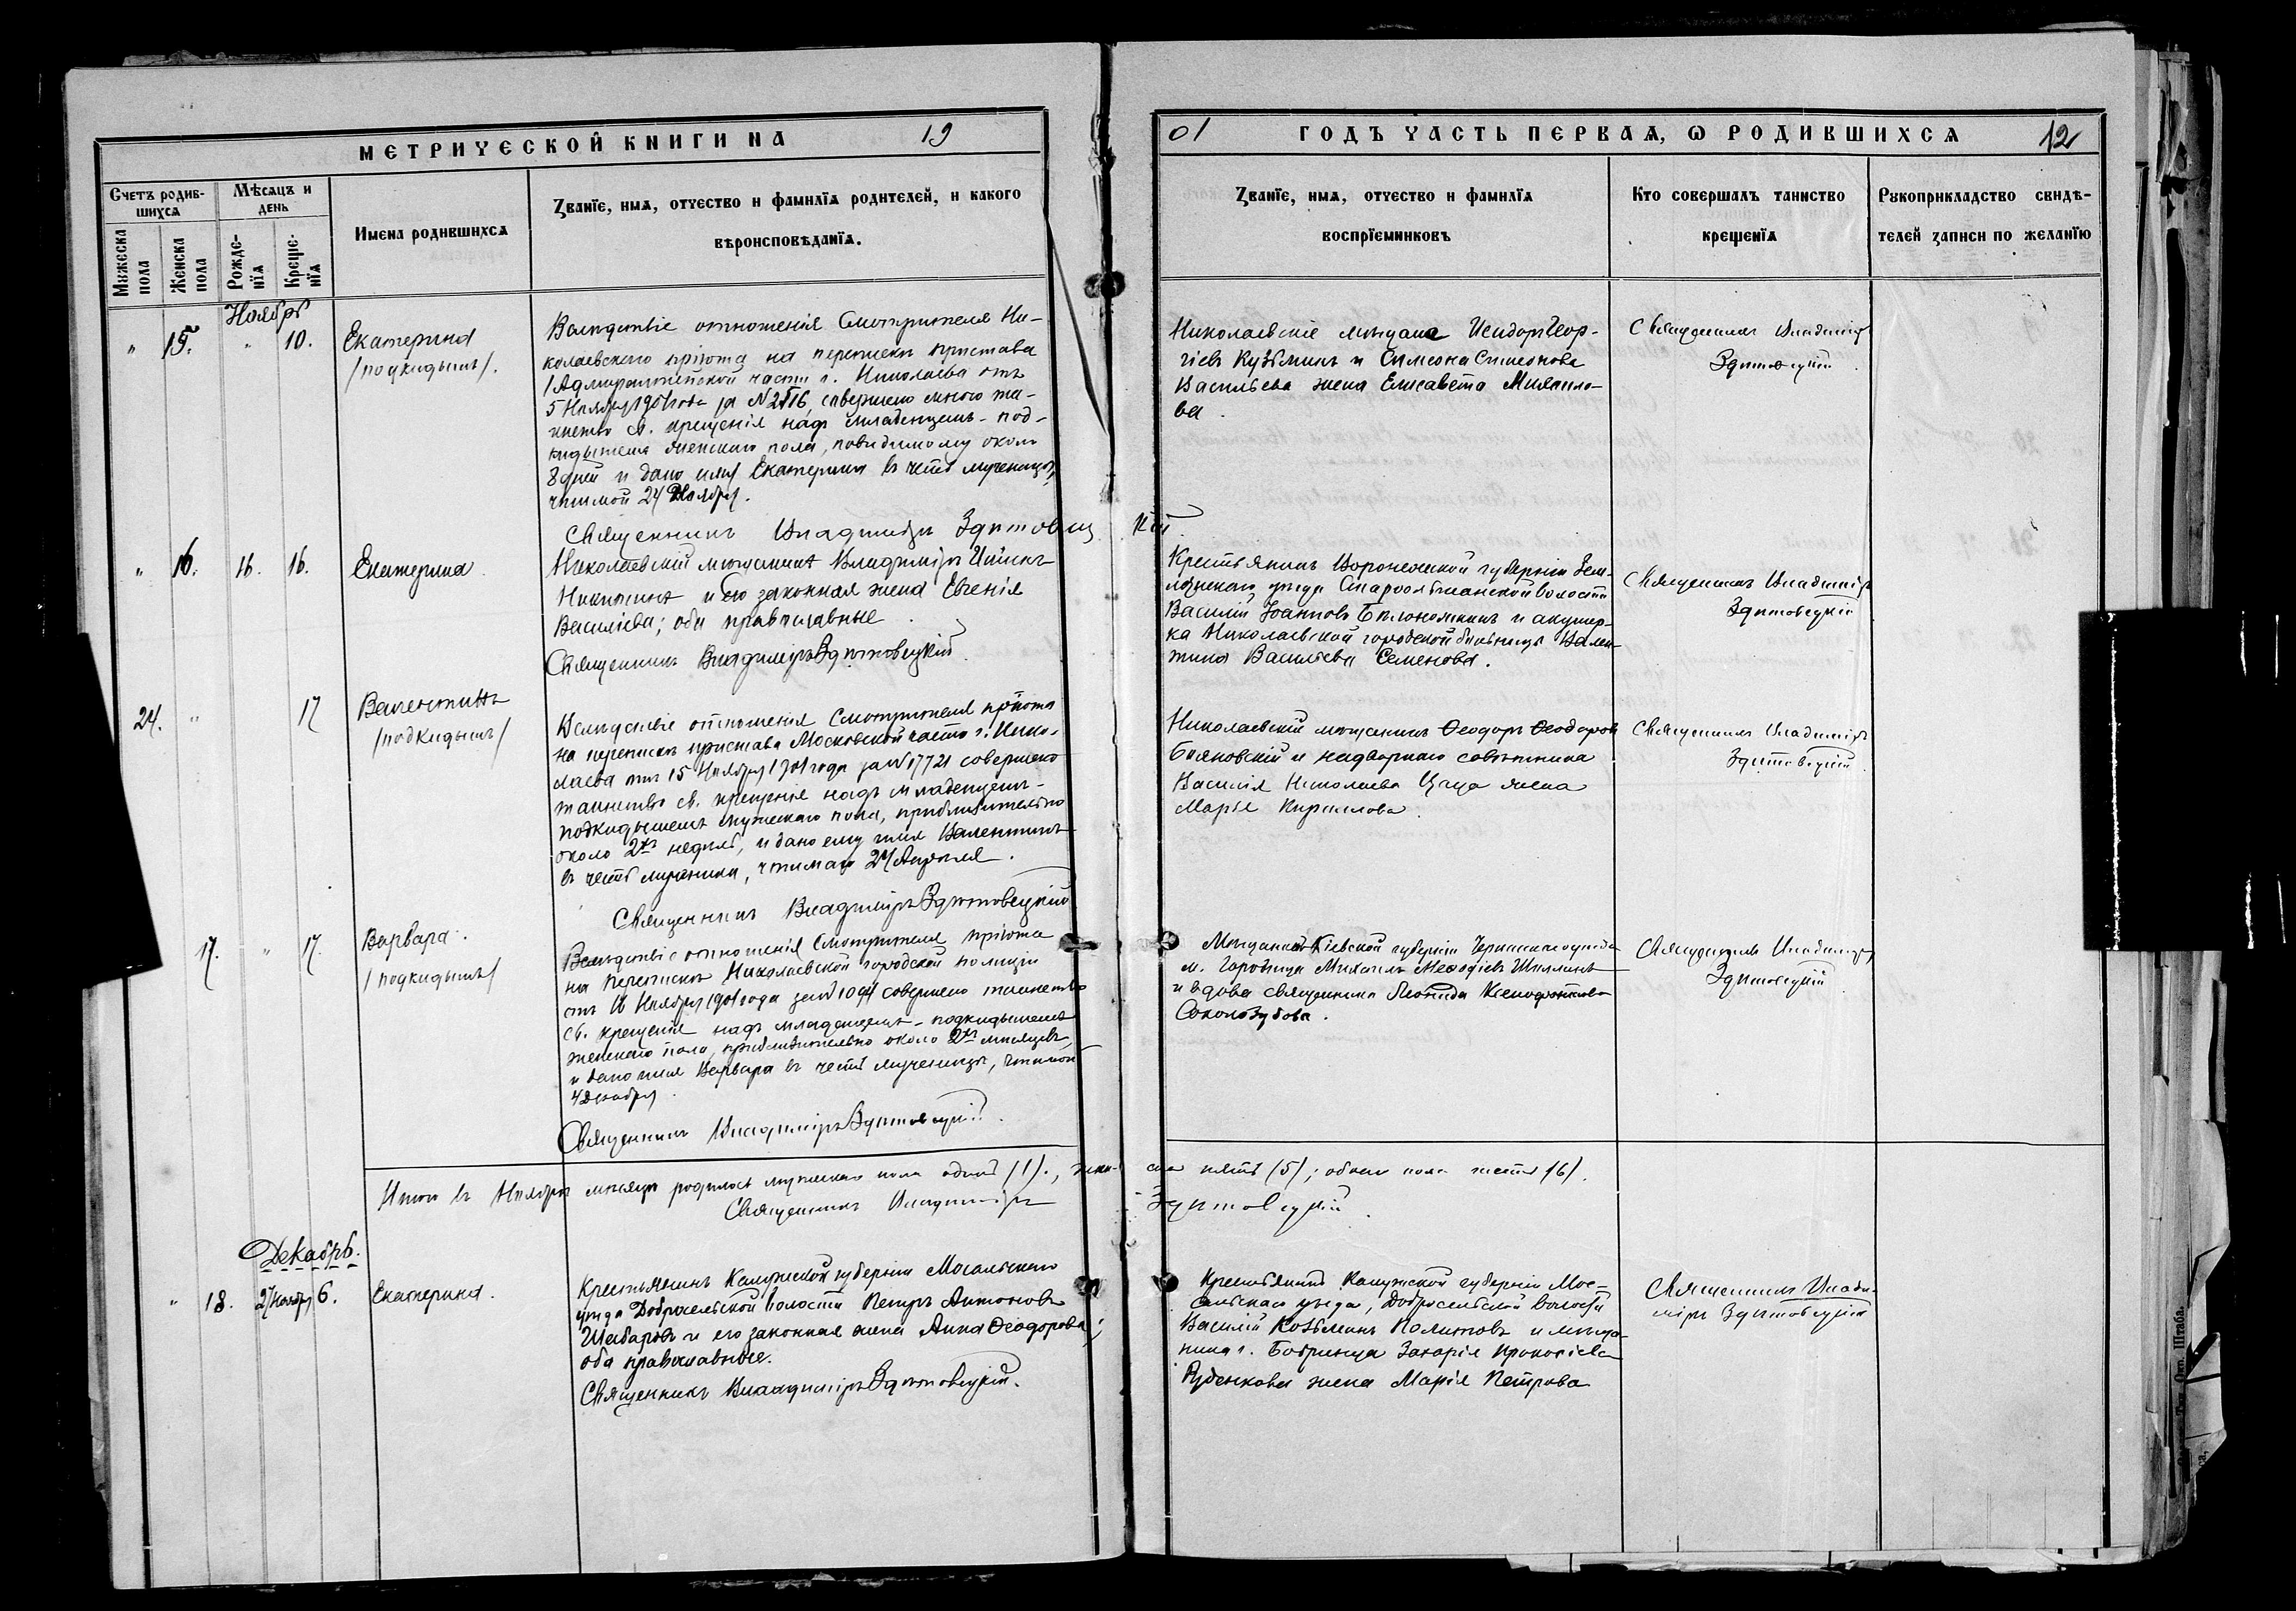 МЕТРИЧЕСКОЙ КНИГИ НА 19
01 ГОДЪ ЧАСТЬ ПЕРВАЯ, Ѡ РОДИВШИХСЯ 12
Счетъ родив-
шихся
Мѣсяцъ и
день
Мужеска
пола
Женска
пола
Рожде-
нїя
Креще-
нїя
Имена родившихся
Званїе, имя, отчество и фамилїя родителей, и какого
вѣроисповѣданїя.
Званїе, имя, отчество и фамилїя
воспрїемниковъ
Кто совершалъ таинство
крещенїя
Рукоприкладство свидѣ-
телей записи по желанїю
Ноябрь
" 15. " 10.
Екатерина
/подкидышъ/.
Вслѣдствіе отношенія Смотрителя Ни-
колаевскаго пріюта на перепискѣ пристава
Адмиралтейской части г. Николаева отъ
5 Ноября 1901 года за № совершено мною та-
инство св. крещенія надъ младенцемъ - под-
кидышемъ женскаго пола, повидимому около
8 дней и дано имя Екатерина въ честь мученицы,
чтимой 24 Ноября.
Священникъ Владиміръ Здитовецкій
Николаевскіе мѣщане Исидоръ Геор-
гіевъ Кузьминъ и Симеона Симеонова
Васильева жена Елисавета Михаило-
ва.
Священникъ Владиміръ
Здитовецкій.
" 16. 16. 16.
Екатерина.
Николаевскій мѣщанинъ Владиміръ
Никитинъ и его законная жена Евгенія
Василіева; оба православные.
Священникъ Владиміръ Здитовецкій.
Крестьянинъ Воронежской губерніи Зем-
лянскаго уѣзда волости
Василій Іоанновъ и акушер-
ка Николаевской городской больницы Вален-
тина Васильева Семенова.
Священникъ Владиміръ
Здитовецкій
24. " 17
Валентинъ
/подкидышъ/
Вслѣдствіе отношенія Смотрителя пріюта
на перепискѣ пристава Московской части г. Нико-
лаева отъ 15 Ноября 1901 года за № 17721 совершено
таинство св. крещенія надъ младенцемъ-
подкидышемъ мужескаго пола, приблизительно
около 2хъ недѣль, и дано ему имя Валентинъ
въ честь мученика, чтимаго 24 Апрѣля.
Священникъ Владиміръ Здитовецкій
Николаевскій мѣщанинъ Ѳеодоръ Ѳеодоровъ
Бояновскій и надворнаго совѣтника
Василія Николаева жена
Марія Кириллова.
Священникъ Владиміръ
Здитовецкій.
17. " 17.
Варвара.
/подкидышъ/
Вслѣдствіе отношенія Смотрителя пріюта
на перепискѣ Николаевской городской полиціи
отъ Ноября 1901 года за № совершено таинство
св. крещенія надъ младенцемъ - подкидышемъ
женскаго пола, приблизительно около 2хъ мѣсяцевъ,
и дано имя Варвара въ честь мученицы, чтимой
4 Декабря.
Священникъ Владиміръ Здитовецкій.
Мѣщанинъ Кіевской губерніи уѣзда
м. Михаилъ Меѳодіевъ
и вдова священника Леонида Ксенофонтова
Соколозубова.
Священникъ Владиміръ
Здитовецкій
Итого въ Ноябрѣ мѣсяцѣ родилось мужескаго пола одинъ (1)., женска пять (5); обоего пола шесть (6).
Священникъ Владиміръ Здитовецкій.
Декабрь.
" 18. 27 Ноября 6.
Екатерина.
Крестьянинъ Калужской губерніи Мосальскаго
уѣзда Доброселськой волости Петръ Антоновъ
Шабаровъ и его законная жена Анна Ѳеодорова;
оба православные.
Священникъ Владиміръ Здитовецкій.
Крестьянинъ Калужской губерніи Мос-
альскаго уѣзда, Доброселськой волости
Василій Козьминъ и мѣща-
нина г. Бобринца Захарія Прокопіева
Руденкова жена Марія Петрова
Священникъ Влади-
міръ Здитовецкій